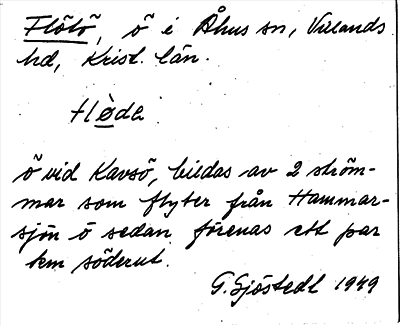 Flötö, ö i Åhus sn, Villands
hd, Krist. län.
flø̀də
ö vid Kavsö, bildas av 2 ström-
mar som flyter från Hammar-
sjön o sedan förenas ett par
km söderut.
G. Sjöstedt 1949